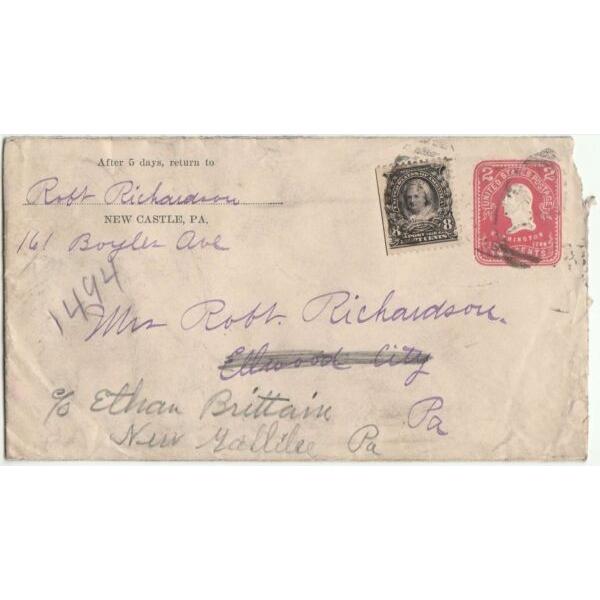 After 5 days, return to
Robt Richardson
NEW CASTLE, PA.
161 Boyles Ave
1494
UNITED STATES OF AMERICA
8 8
POSTAGE
EIGHT CENTS
2 2
UNITED STATES POSTAGE
WASHINGTON
TWO CENTS
Mrs Robt. Richardson.
Ellwood City
Pa
c/o Ethan Brittain
New Gallilee Pa